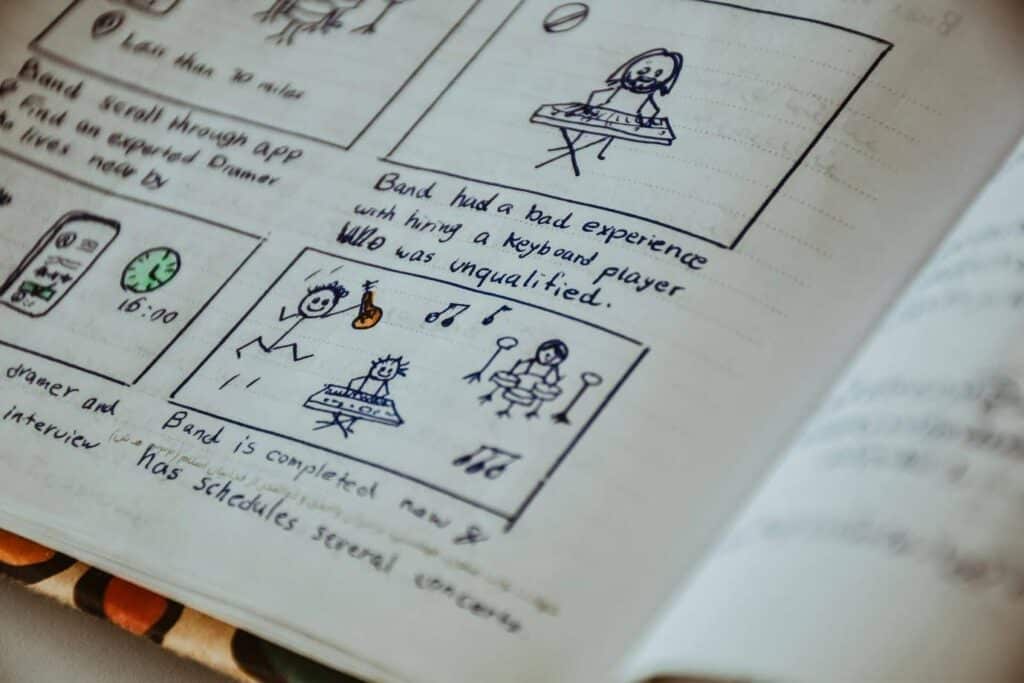 Less than 30 miles
Band scroll through app
Find an experted Dramer
he lives near by
Band had a bad experience
with hiring a keyboard player
who was unqualified.
16:00
dramer and
interview
Band is completed now &
has schedules several concerts